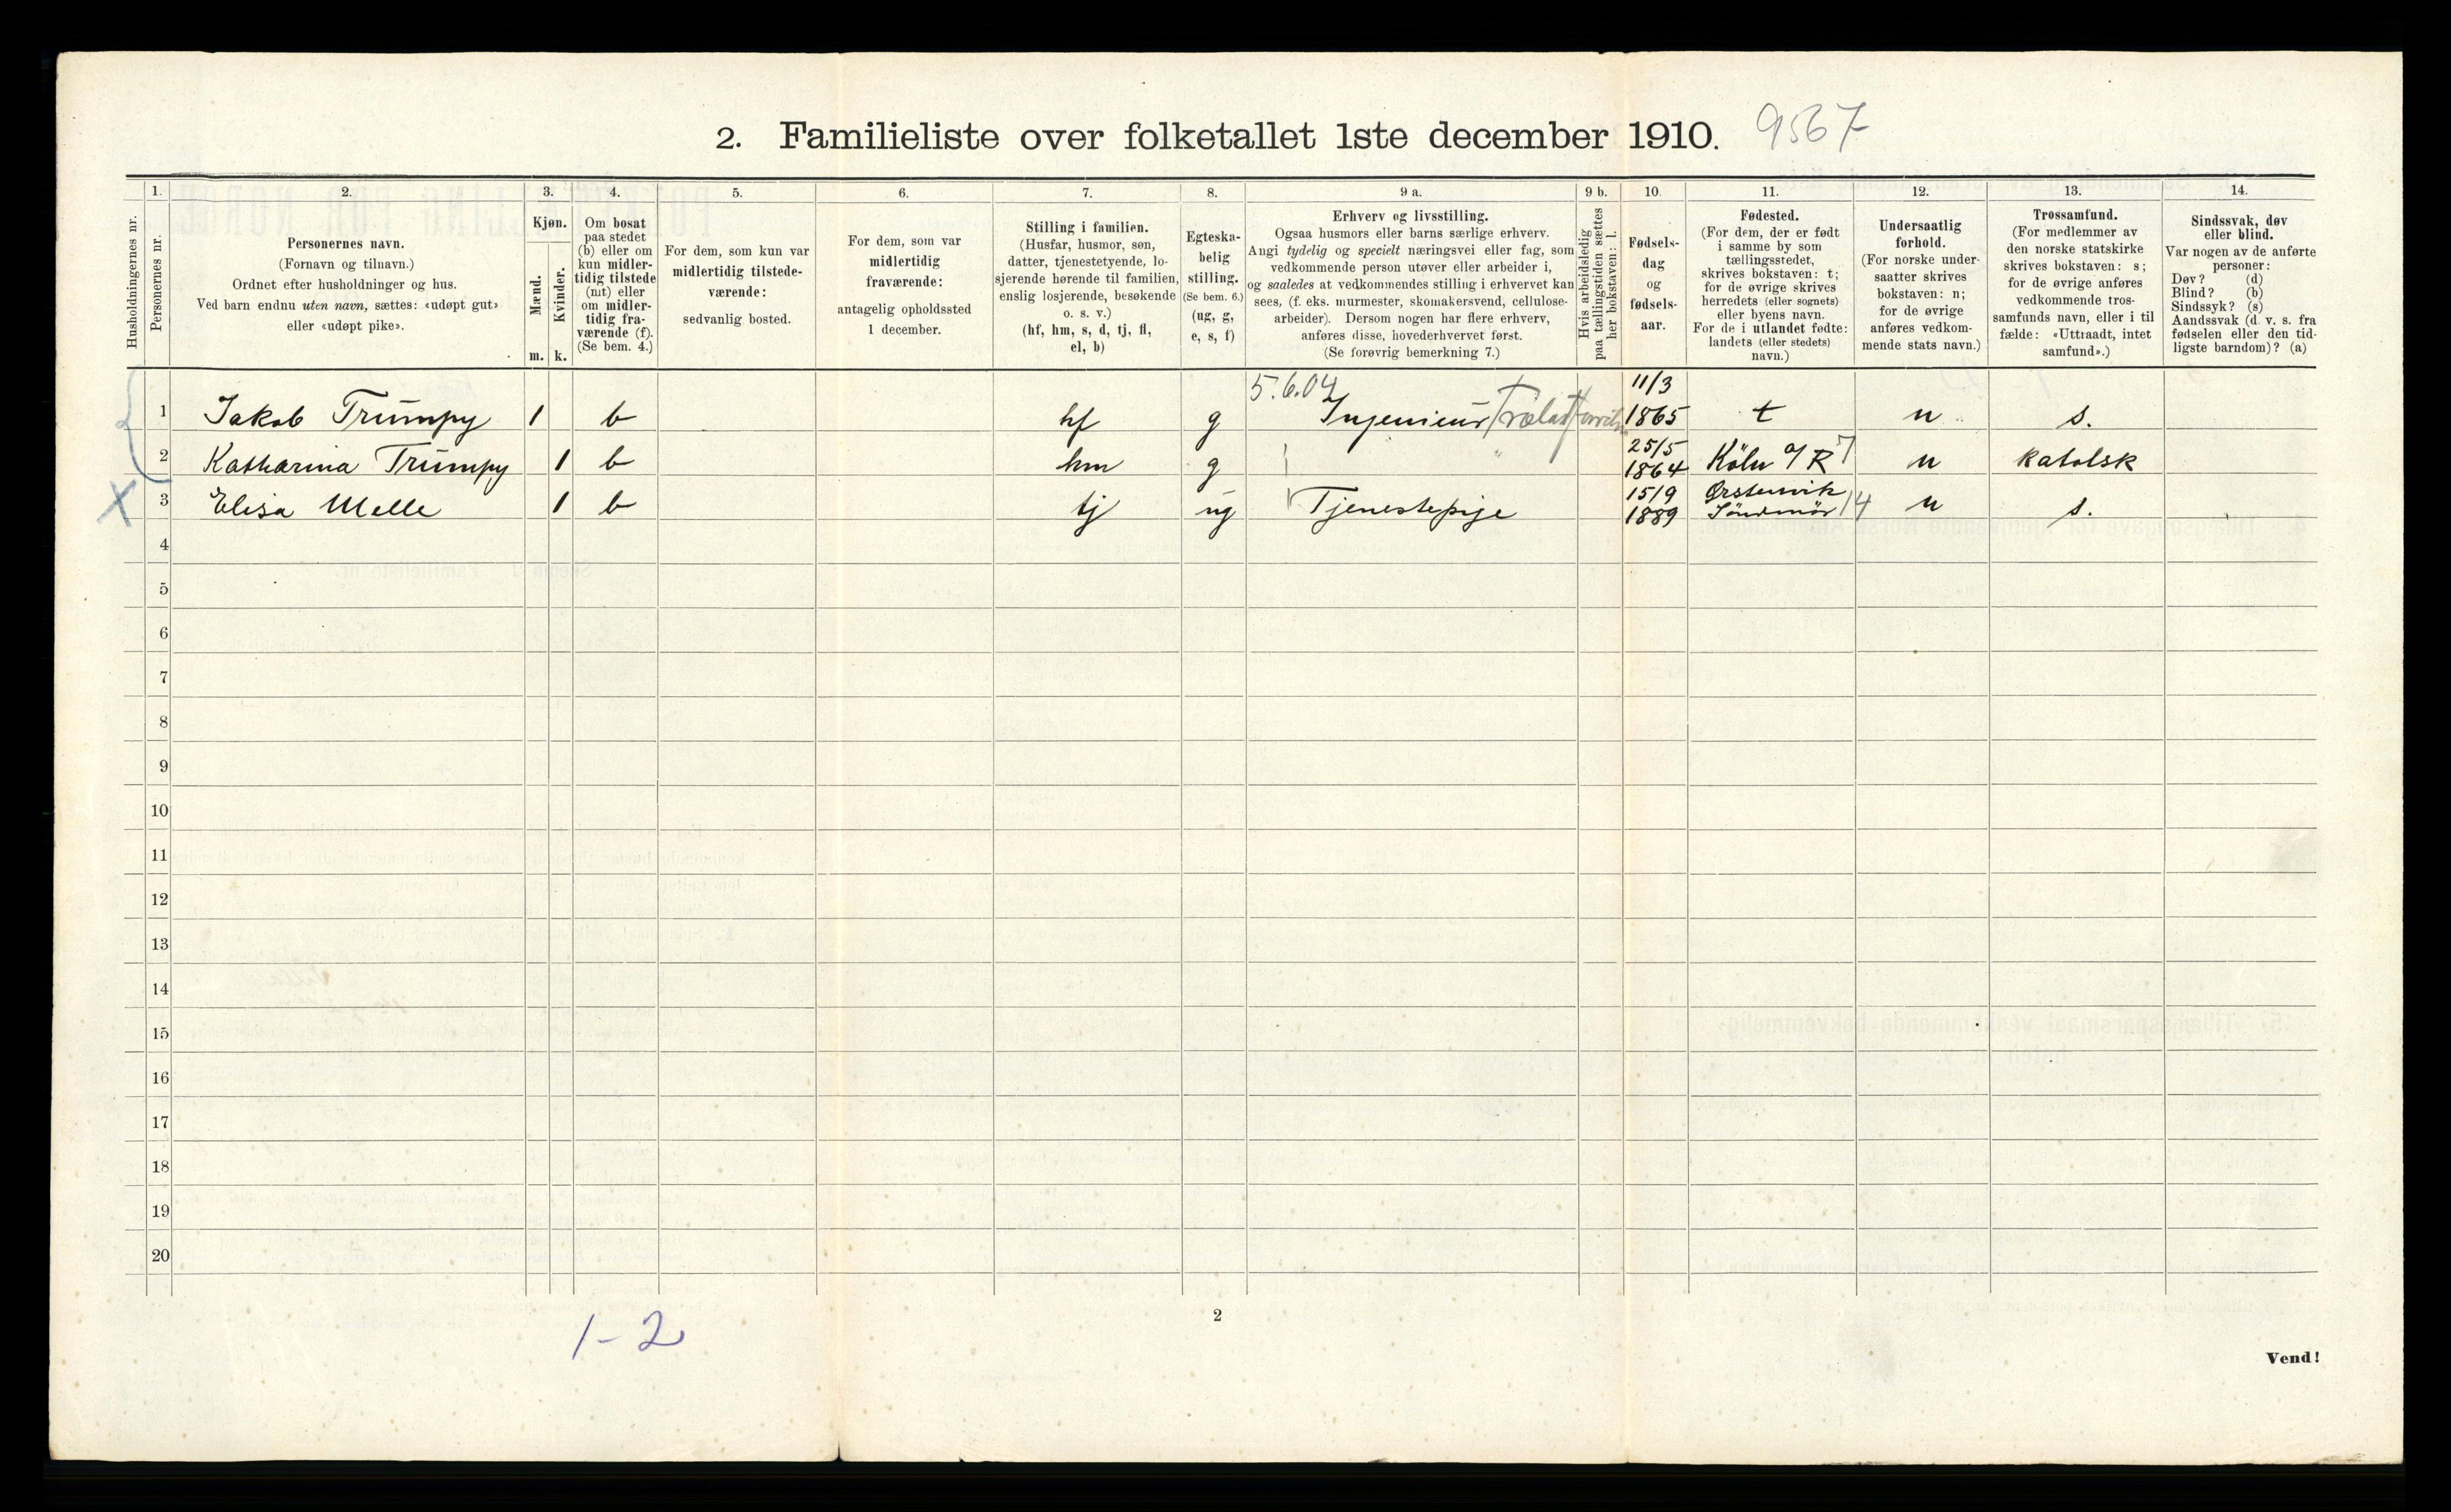 2. Familieliste over folketallet 1ste december 1910. 9567
Husholdningernes nr.
1.
Personernes nr.
2.
Personernes navn.
(Fornavn og tilnavn.)
Ordnet efter husholdninger og hus.
Ved barn endnu uten navn, sættes: «udøpt gut»
eller «udøpt pike».
3.
Kjøn.
Mænd.
Kvinder.
m. k.
4.
Om bosat
paa stedet
(b) eller om
kun midler-
tidig tilstede
(mt) eller
om midler-
tidig fra-
værende (f).
(Se bem. 4.)
5.
For dem, som kun var
midlertidig tilstede-
værende:
sedvanlig bosted.
6.
For dem, som var
midlertidig
fraværende:
antagelig opholdssted
1 december.
7.
Stilling i familien.
(Husfar, husmor, søn,
datter, tjenestetyende, lo-
sjerende hørende til familien,
enslig losjerende, besøkende
o. s. v.)
(hf, hm, s, d, tj, fl,
el, b)
8.
Egteska-
belig
stilling.
(Se bem. 6.)
(ug, g,
e, s, f)
9 a.
Erhverv og livsstilling.
Ogsaa husmors eller barns særlige erhverv.
Angi tydelig og specielt næringsvei eller fag, som
vedkommende person utøver eller arbeider i,
og saaledes at vedkommendes stilling i erhvervet kan
sees, (f. eks. murmester, skomakersvend, cellulose-
arbeider). Dersom nogen har flere erhverv,
anføres disse, hovederhvervet først.
(Se forøvrig bemerkning 7.)
9 b.
Hvis arbeidsledig
paa tællingstiden sættes
her bokstaven: l.
10.
Fødsels-
dag
og
fødsels-
aar.
11.
Fødested.
(For dem, der er født
i samme by som
tællingsstedet,
skrives bokstaven: t;
for de øvrige skrives
herredets (eller sognets)
eller byens navn.
For de i utlandet fødte:
landets (eller stedets)
navn.)
12.
Undersaatlig
forhold.
(For norske under-
saatter skrives
bokstaven: n;
for de øvrige
anføres vedkom-
mende stats navn.)
13.
Trossamfund.
(For medlemmer av
den norske statskirke
skrives bokstaven: s;
for de øvrige anføres
vedkommende tros-
samfunds navn, eller i til
fælde: «Uttraadt, intet
samfund».)
14.
Sindssvak, døv
eller blind.
Var nogen av de anførte
personer:
Døv? (d)
Blind? (b)
Sindssyk? (s)
Aandssvak (d. v. s. fra
fødselen eller den tid-
ligste barndom)? (a)
5.6.04 11/3
1 Jakob Trumpy 1 b hf g Ingeniør Trælast 1865 t n s.
25/5
2 Katharina Trumpy 1 b hm g 1864 Köln a/R 7 n katolsk
15/9 Ørstenvik
X 3 Elisa Melle 1 b tj ug Tjenestepige 1889 Söndmör 14 n s.
4
5
6
7
8
9
10
11
12
13
14
15
16
17
18
19
20
1-2
2
Vend!